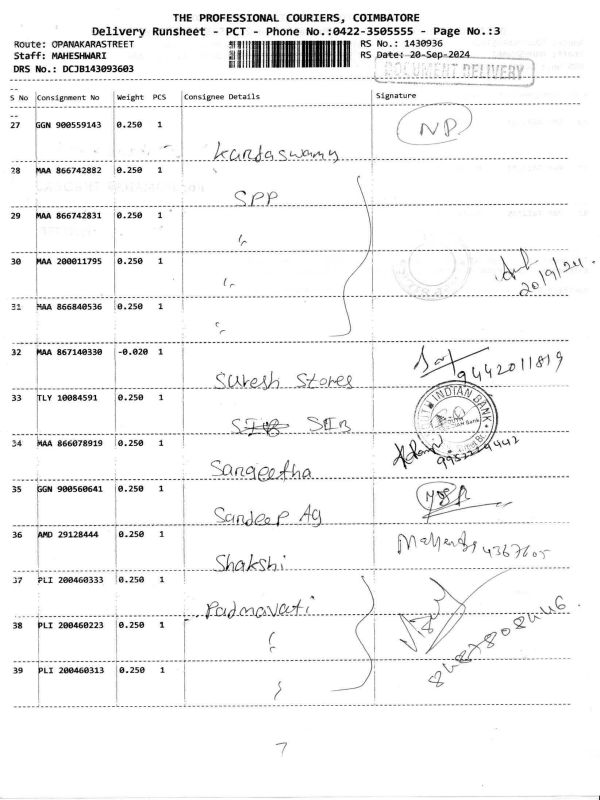 THE PROFESSIONAL COURIERS, COIMBATORE
Delivery Runsheet - PCT - Phone No.:0422-3505555 - Page No.:3
Route: OPANAKARASTREET RS No.: 1430936
Staff: MAHESHWARI RS Date: 20-Sep-2024
DRS No.: DCJB143093603 DOCUMENT DELIVERY
S No Consignment No Weight PCS Consignee Details Signature
27 GGN 900559143 0.250 1 NP
Kandaswamy
28 MAA 866742882 0.250 1
SPP
29 MAA 866742831 0.250 1
"
30 MAA 200011795 0.250 1
" 20/9/24
31 MAA 866840536 0.250 1
"
32 MAA 867140330 -0.020 1
Suresh Stores 9442011819
33 TLY 10084591 0.250 1 INDIAN BANK
SIB
34 MAA 866078919 0.250 1
Sangeetha
35 GGN 900560641 0.250 1
Sandeep Ag
36 AMD 29128444 0.250 1
Shakshi
37 PLI 200460333 0.250 1
Padmavati
38 PLI 200460223 0.250 1
"
39 PLI 200460313 0.250 1
"
7